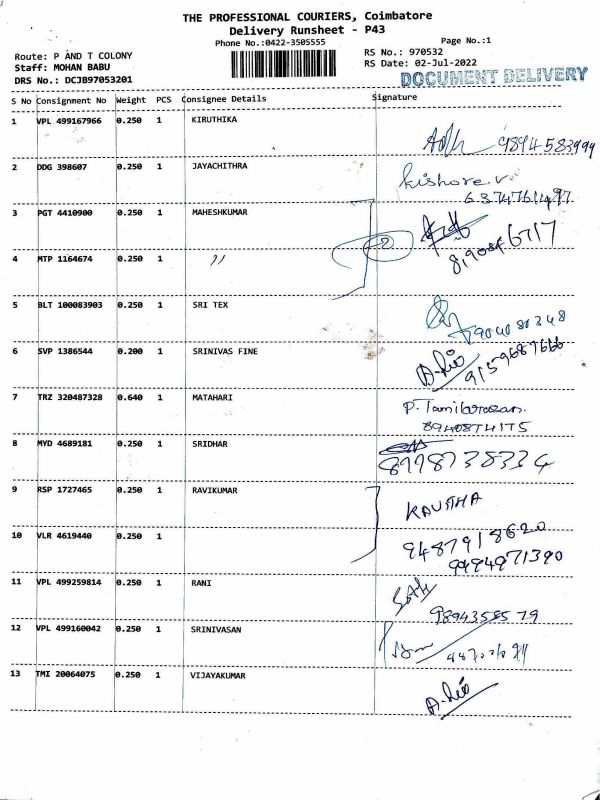 THE PROFESSIONAL COURIERS, Coimbatore
Delivery Runsheet - P43
Phone No.:0422-3505555
Page No.:1
Route: P AND T COLONY
RS No.: 970532
Staff: MOHAN BABU
RS Date: 02-Jul-2022
DRS No.: DCJB97053201
DOCUMENT DELIVERY
S No Consignment No Weight PCS Consignee Details Signature
1 VPL 499167966 0.250 1 KIRUTHIKA
9894583999
2 DDG 398607 0.250 1 JAYACHITHRA
Kishore.V
6374761497
3 PGT 4410900 0.250 1 MAHESHKUMAR
2
4 MTP 1164674 0.250 1 〃
5 BLT 100083903 0.250 1 SRI TEX
6 SVP 1386544 0.200 1 SRINIVAS FINE
9159687666
7 TRZ 320487328 0.640 1 MATAHARI
P. Tamilarasan.
8940874175
8 MYD 4689181 0.250 1 SRIDHAR
8778738334
9 RSP 1727465 0.250 1 RAVIKUMAR
KAVITHA
10 VLR 4619440 0.250 1
9487918620
9494971390
11 VPL 499259814 0.250 1 RANI
12 VPL 499160042 0.250 1 SRINIVASAN
13 TMI 20064075 0.250 1 VIJAYAKUMAR